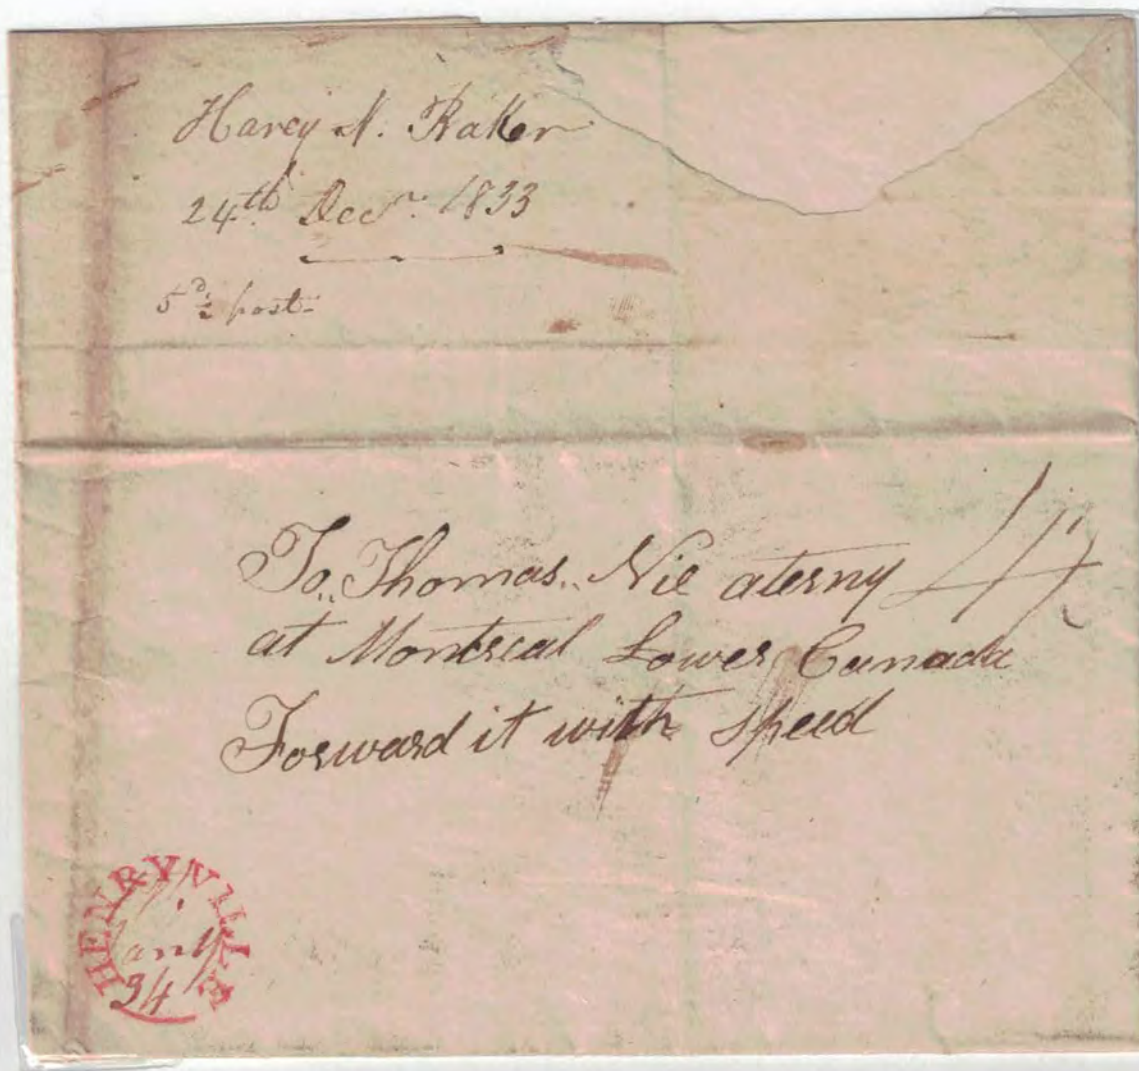 Harvey N. Baker
24th Decr. 1833
5 D ½ post
To Thomas Nie aterny 4½
at Montreal Lower Canada
Forward it with speed
HENRYVILLE
1
Jany
34